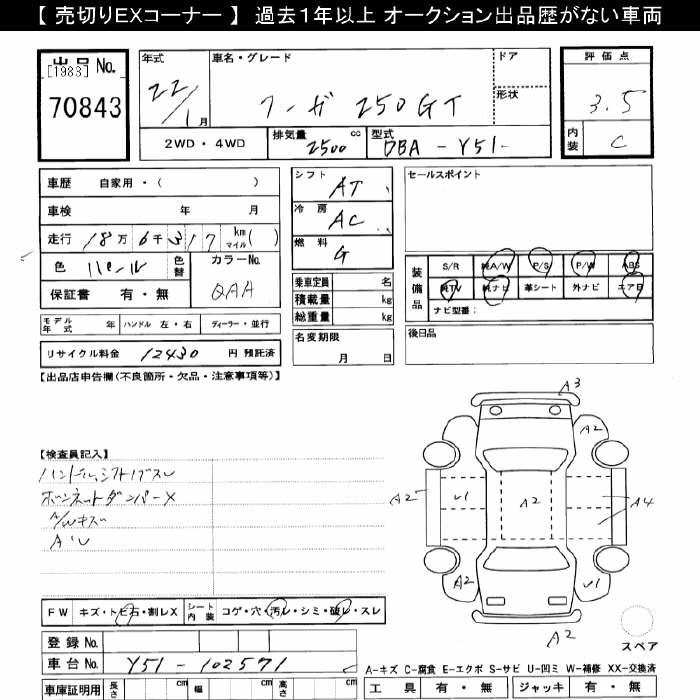 【 売切りEXコーナー 】 過去1年以上 オークション出品歴がない車両
出品 No.
[1983]
70843
年式
22/1月
車名・グレード
フーガ 250GT
ドア
形状
2WD ・ 4WD
排気量 2500 cc
型式 DBA - Y51-
評価点
3.5
内装 C
車歴 自家用・( )
車検 年 月
走行 18万 6千 317 km マイル ( )
色 パール
色替
カラーNo.
QAA
保証書 有・無
シフト AT
冷房 AC
燃料 G
乗車定員 名
積載量 kg
総重量 kg
名変期限
月 日
セールスポイント
装備品
S/R 純A/W P/S P/W ABS
純TV 純ナビ 革シート 外ナビ エアB
ナビ型番:
後日品
モデル年式 年 ハンドル 左・右 ディーラー・並行
リサイクル料金 12430 円 預託済
【出品店申告欄(不良箇所・欠品・注意事項等)】
【検査員記入】
ハンドル、シフトノブスレ
ボンネットダンパーX
A/Wキズ
A'U
A3
A2
A2
U1
A2
A4
A2
U1
A2
スペア
FW キズ・トビ石・割レX
シート内装 コゲ・穴・汚レ・シミ・破レ・スレ
登録 No.
車台 No. Y51-102571
車庫証明用 長さ cm 幅 cm 高さ cm
A-キズ C-腐食 E-エクボ S-サビ U-凹ミ W-補修 XX-交換済
工具 有・無 ジャッキ 有・無